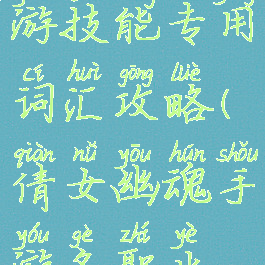 游技能专用
cí huì gōng lüè
词汇攻略(
qiàn nǚ yōu hún shǒu
倩女幽魂手
yóu gè zhí yè